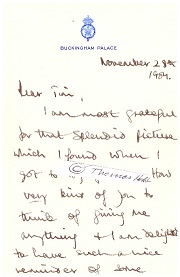 BUCKINGHAM PALACE
November 28th
1954.
Dear Tim,
I am most grateful
for that splendid picture
which I found when I
got to " " How
© Thomas
very kind of you to
think of giving me
anything & I am delighted
to have such a nice
reminder of some